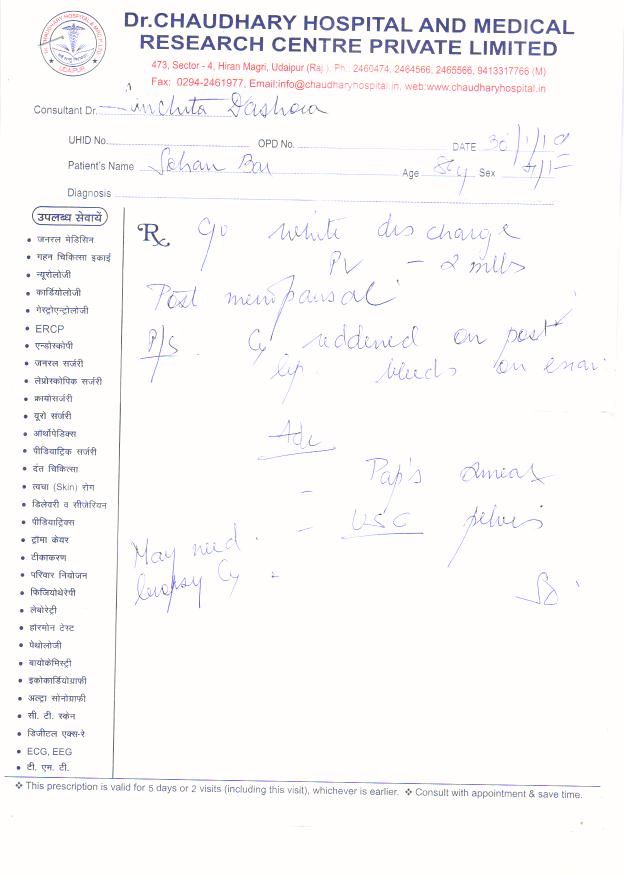 Dr.CHAUDHARY HOSPITAL AND MEDICAL
RESEARCH CENTRE PRIVATE LIMITED
473, Sector - 4, Hiran Magri, Udaipur (Raj.). Ph.: 2460474, 2464566, 2465566, 9413317766 (M)
Fax; 0294-2461977, Email:info@chaudharyhospital.in, web:www.chaudharyhospital.in
Consultant Dr.
UHID No. OPD No. DATE 30/1/
Patient's Name Sohan Bai Age Sex
Diagnosis
उपलब्ध सेवायें
जनरल मेडिसिन
गहन चिकित्सा इकाई
न्यूरोलोजी
कार्डियोलोजी
गेस्ट्रोएन्ट्रोलोजी
ERCP
एन्डोस्कोपी
जनरल सर्जरी
लेप्रोस्कोपिक सर्जरी
क्रायोसर्जरी
यूरो सर्जरी
ऑर्थोपेडिक्स
पीडियाट्रिक सर्जरी
दंत चिकित्सा
त्वचा (Skin) रोग
डिलेवरी व सीजेरियन
पीडियाट्रिक्स
ट्रॉमा केयर
टीकाकरण
परिवार नियोजन
फिजियोथेरेपी
लेबोरेट्री
हॉरमोन टेस्ट
पेथोलोजी
बायोकेमिस्ट्री
इकोकार्डियोग्राफी
अल्ट्रा सोनोग्राफी
सी. टी. स्केन
डिजीटल एक्स-रे
ECG, EEG
टी. एम. टी.
Rx C/o white discharge
PV - 2 mths
Post menopausal
P/S. Cx reddened on post
lip. bleeds on exam.
Adv
- Pap's smear
- USG pelvis
May need
biopsy Cx
This prescription is valid for 5 days or 2 visits (including this visit), whichever is earlier. Consult with appointment & save time.